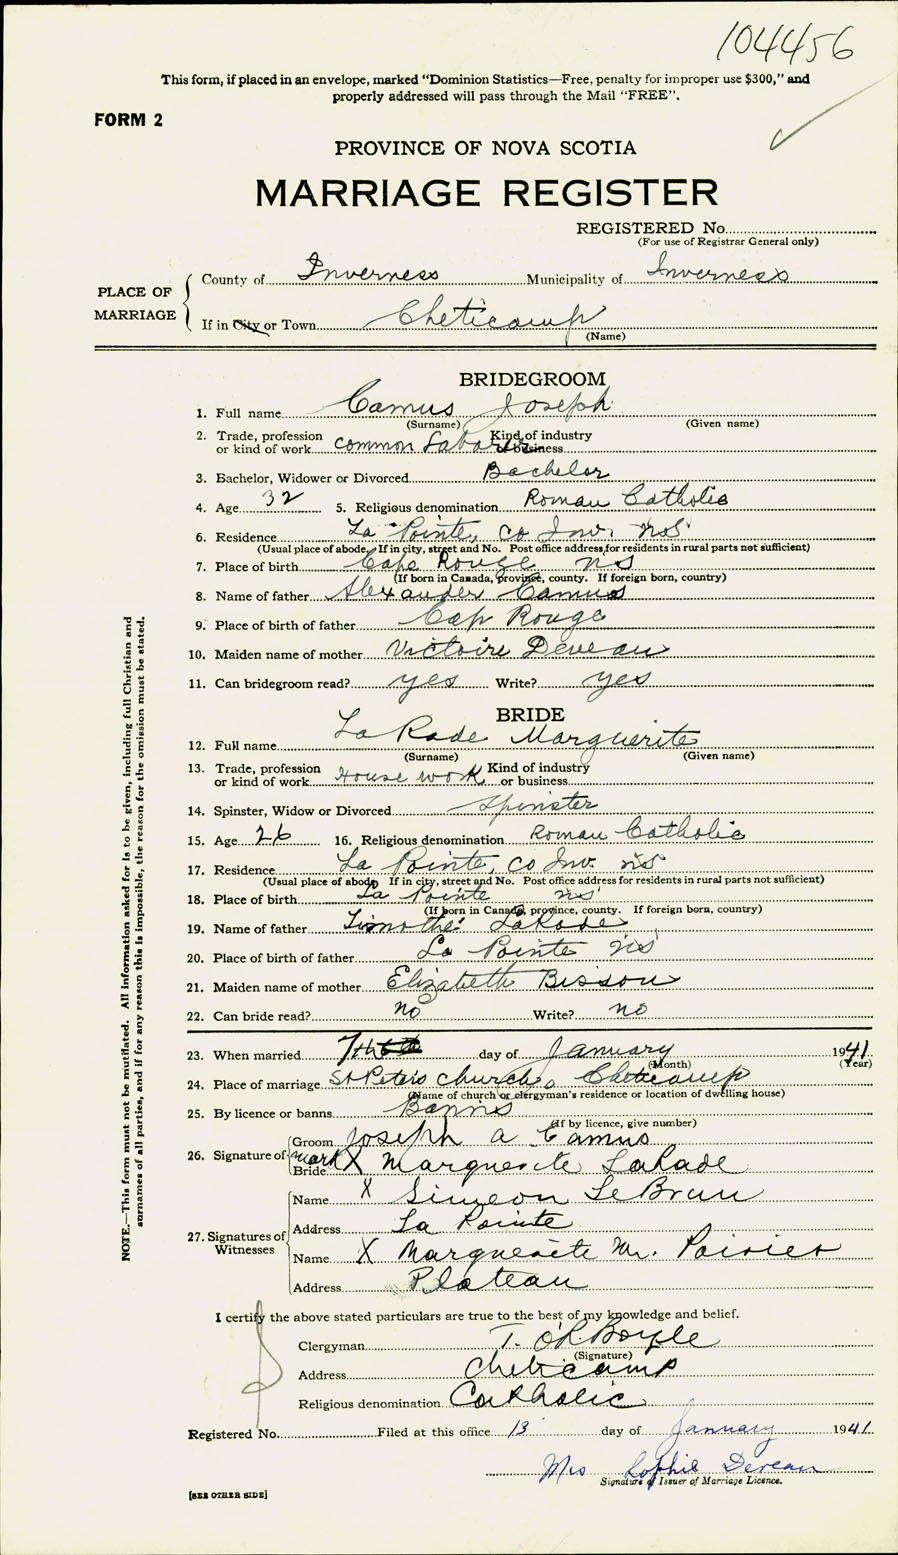 104456
This form, if placed in an envelope, marked "Dominion Statistics—Free, penalty for improper use $300," and
properly addressed will pass through the Mail "FREE".
FORM 2
PROVINCE OF NOVA SCOTIA
MARRIAGE REGISTER
REGISTERED No.
(For use of Registrar General only)
PLACE OF MARRIAGE
County of Inverness Municipality of Inverness
If in City or Town Cheticamp
(Name)
BRIDEGROOM
1. Full name Camus Joseph
(Surname) (Given name)
2. Trade, profession or kind of work common Laborer Kind of industry or business
3. Bachelor, Widower or Divorced Bachelor
4. Age 32 5. Religious denomination Roman Catholic
6. Residence La Pointe, co Inv. NS
(Usual place of abode. If in city, street and No. Post office address for residents in rural parts not sufficient)
7. Place of birth Cape Rouge NS
(If born in Canada, province, county. If foreign born, country)
8. Name of father Alexander Camus
9. Place of birth of father Cap Rouge
10. Maiden name of mother Victoire Deveau
11. Can bridegroom read? yes Write? yes
BRIDE
12. Full name LaRade Marguerite
(Surname) (Given name)
13. Trade, profession or kind of work House work Kind of industry or business
14. Spinster, Widow or Divorced Spinster
15. Age 26 16. Religious denomination Roman Catholic
17. Residence La Pointe, co Inv. NS
(Usual place of abode If in city, street and No. Post office address for residents in rural parts not sufficient)
18. Place of birth La Pointe NS
(If born in Canada, province, county. If foreign born, country)
19. Name of father Timothé LaRade
20. Place of birth of father La Pointe NS
21. Maiden name of mother Elizabeth Bisson
22. Can bride read? no Write? no
23. When married 7th day of January 1941
(Month) (Year)
24. Place of marriage St Peters church, Cheticamp
(Name of church or clergyman's residence or location of dwelling house)
25. By licence or banns Banns
(If by licence, give number)
26. Signature of Groom Joseph a Camus
Bride mark X Marguerite LaRade
27. Signatures of Witnesses
Name X Simeon LeBrun
Address La Pointe
Name X Marguerite M. Poirier
Address Plateau
I certify the above stated particulars are true to the best of my knowledge and belief.
Clergyman T. O'R Boyle
(Signature)
Address Cheticamp
Religious denomination Catholic
Registered No. Filed at this office 13 day of January 1941
Mrs Sophie Deveau
Signature of Issuer of Marriage Licence.
[SEE OTHER SIDE]
NOTE.—This form must not be mutilated. All information asked for is to be given, including full Christian and
surnames of all parties, and if for any reason this is impossible, the reason for the omission must be stated.